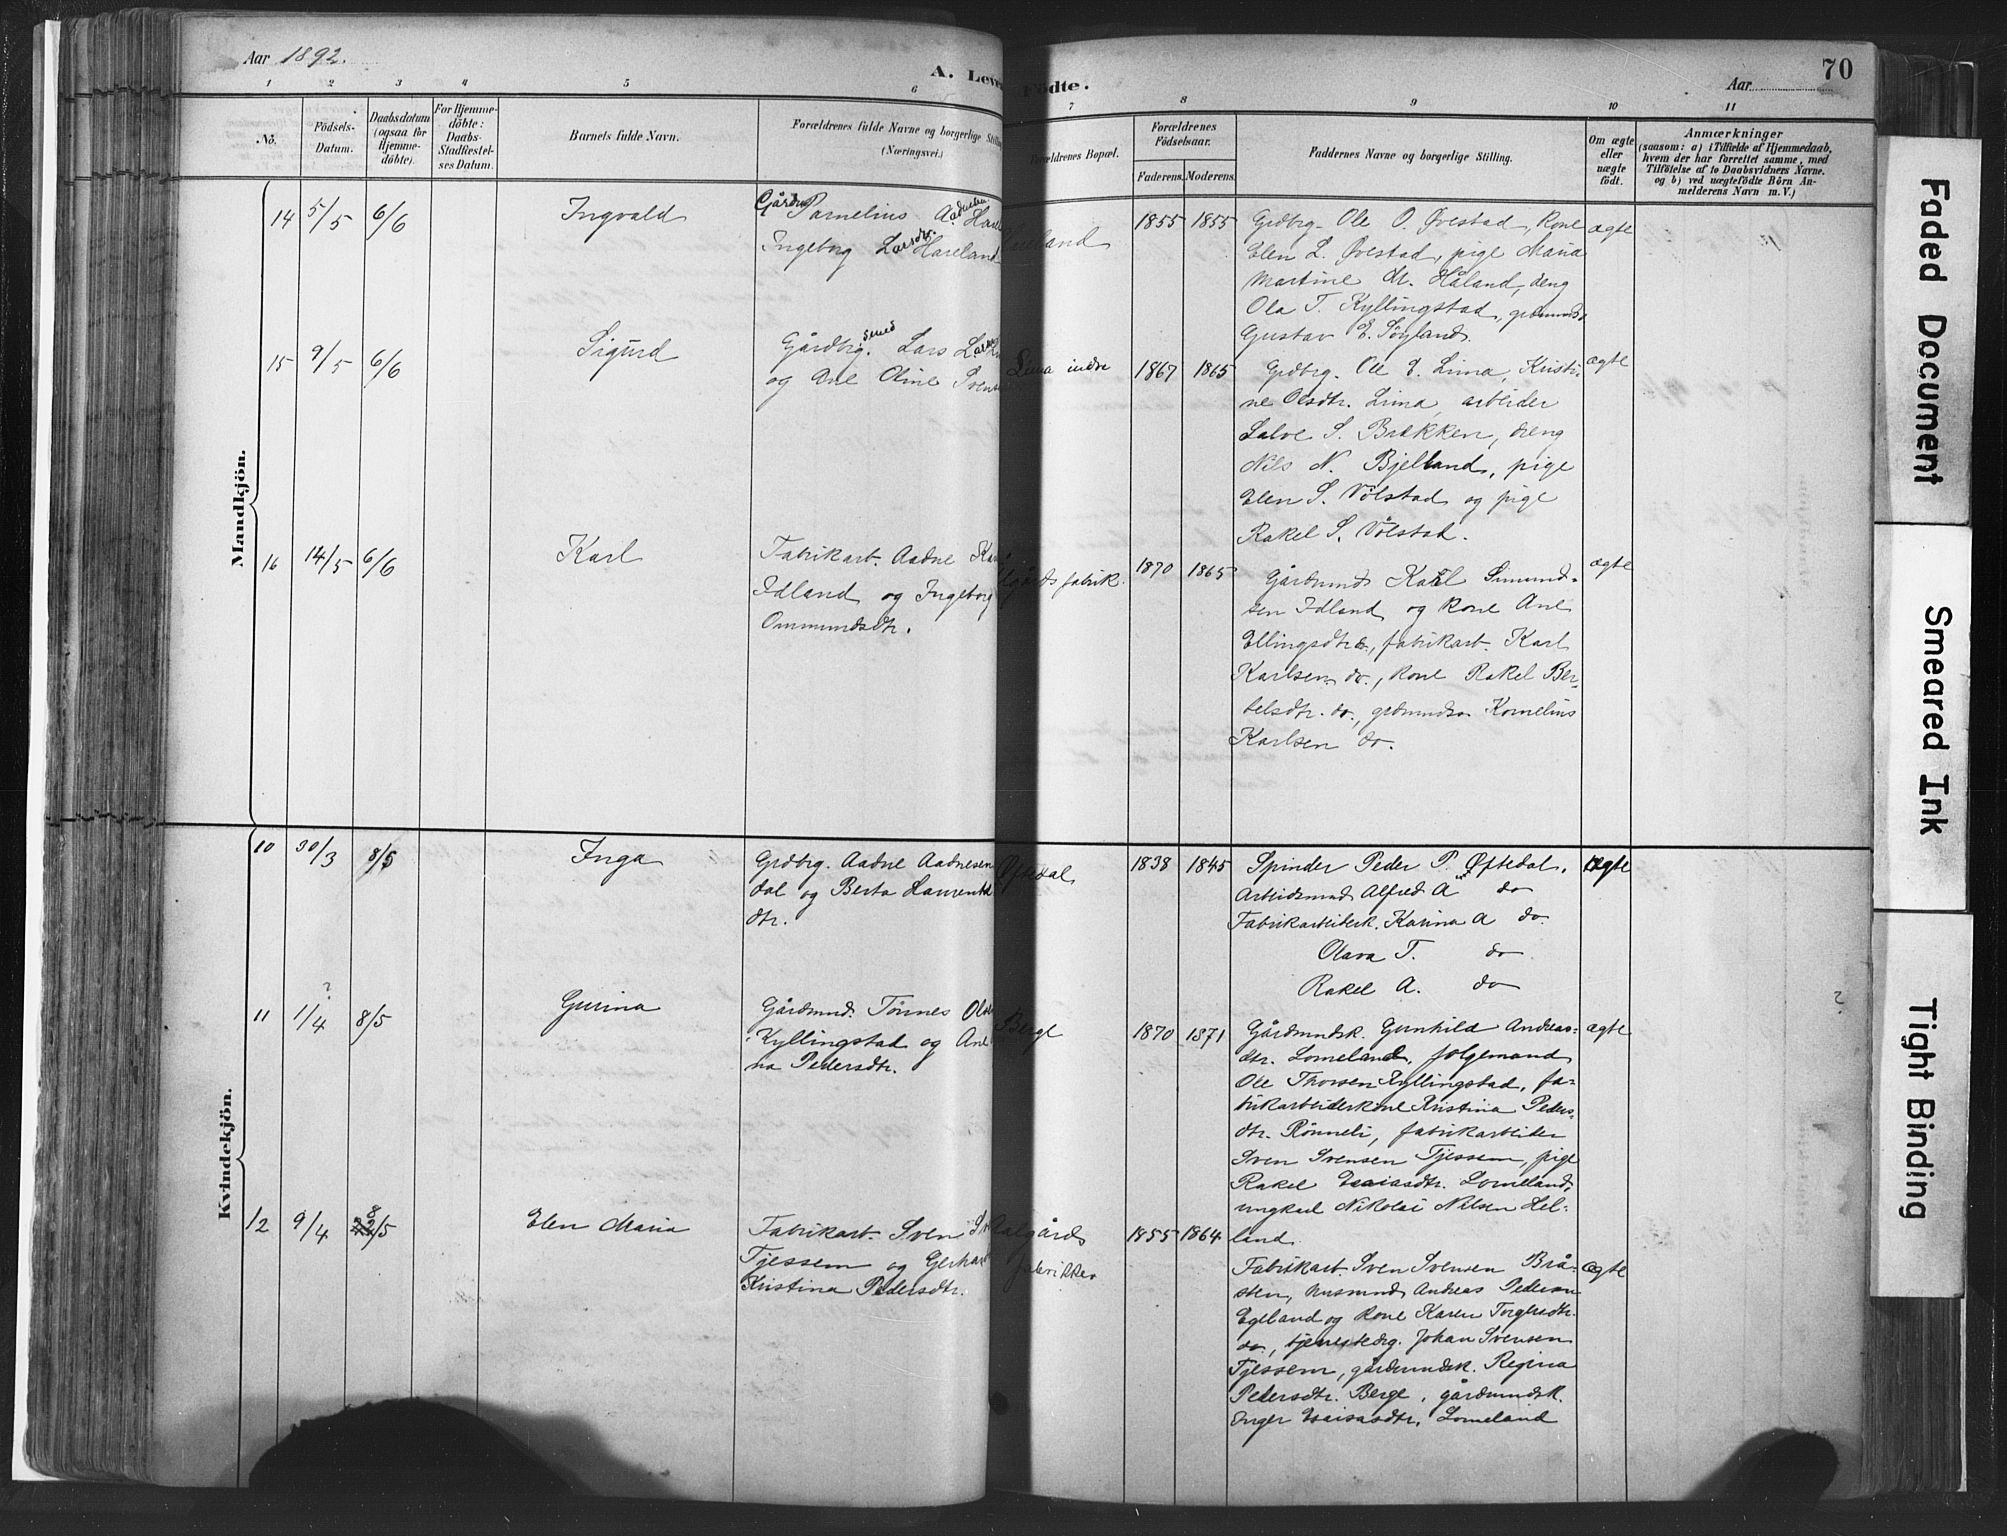 Aar 1892.
A. Lev
Födte.
Aar
70
1 2 3 4 5 6 7 8 9 10 11
No.
Födsels-
Datum.
Daabsdatum
(ogsaa for
Hjemme-
døbte).
For Hjemme-
döbte:
Daabs-
Stadfæstel-
ses Datum.
Barnets fulde Navn.
Forældrenes fulde Navne og borgerlige Stilling
(Næringsvei.)
Forældrenes Bopæl.
Forældrenes
Födselsaar.
Faderens. Moderens.
Faddernes Navne og borgerlige Stilling.
Om ægte
eller
uægte
födt.
Anmærkninger
(saasom: a) i Tilfælde af Hjemmedaab,
hvem der har forrettet samme, med
Tilföielse af to Daabsvidners Navne.
og b) ved uægtefödte Börn An-
melderens Navn m. V.)
Mandkjön.
14 5/5 6/6 Ingvald
Ingeborg Larsdtr. Hareland
1855 1855
Grdbrg. Ole O. Øvestad, Kone
Elen L. Øvestad, pige Maria
Martine M. Håland, dreng
Ola T. Kyllingstad, grdmnds.
Gustav E. Søyland.
ægte
15 9/5 6/6 Sigurd
Gårdbrg. smed Lars
og Ane Oline Svens
Lima indre
1867 1865
Grdbrg. Ole E. Lima, Kristi-
ne Olsdtr. Lima, arbeider
Salve S. Brekken, dreng
Nils N. Bjelland, pige
Elen S. Vølstad og pige
Rakel S. Vølstad.
ægte
16 14/5 6/6 Karl
Fabrikarb. Aadne Kar
Idland og Ingeborg
Ommundsdtr.
lgårds fabrik.
1870 1865
Gårdmnd Karl Simund-
sen Idland og Kone Ane
Ellingsdtr do., fabrikarb. Karl
Karlsen do., Kone Rakel Ber-
telsdtr. do., grdmnds. Kornelius
Karlsen do.
ægte
Kvindekjön.
10 30/3 8/5 Inga
Grdbrg. Aadne Aadnesen
dal og Berta Laurents
dtr.
Øftedal
1838 1845
Spinder Peder P. Øftedal.
Arbeidsmnd Alfred A do
Fabrikarbeidersk. Karina A do.
Olava T. do
Rakel A. do
ægte
11 1/4 ? 8/5 Gurina
Gårdmnd. Tønnes Ols
Kyllingstad og An
na Pedersdtr.
Berge
1870 1871
Gårdmndsk. Gunhild Andreas-
dtr. Lomeland, følgemand
Ole Thorsen Kyllingstad, fa-
brikarbeiderkone Kristina Peders-
dtr. Rønneli, fabrikarbeider
Sven Svensen Tjessem, pige
Rakel Esaiasdtr. Lomeland,
ungkarl Nikolai Nilsen Hel-
land.
ægte
?
12 9/4 8/5 Elen Maria
Fabrikarb. Sven
Tjessem og Gerhar
Kristina Pedersdtr.
Aalgårds
fabrikker
1855 1864
Fabrikarb. Sven Svensen Brå-
sten, husmnd Andreas Pedersen
Egeland og Kone Karen Torgersdtr.
do., tjenestedrg. Johan Svensen
Tjessem, gårdmndsk. Regina
Pedersdtr. Berge, gårdmndsk.
Inger Esaiasdtr. Lomeland
ægte
Faded Document
Smeared Ink
Tight Binding